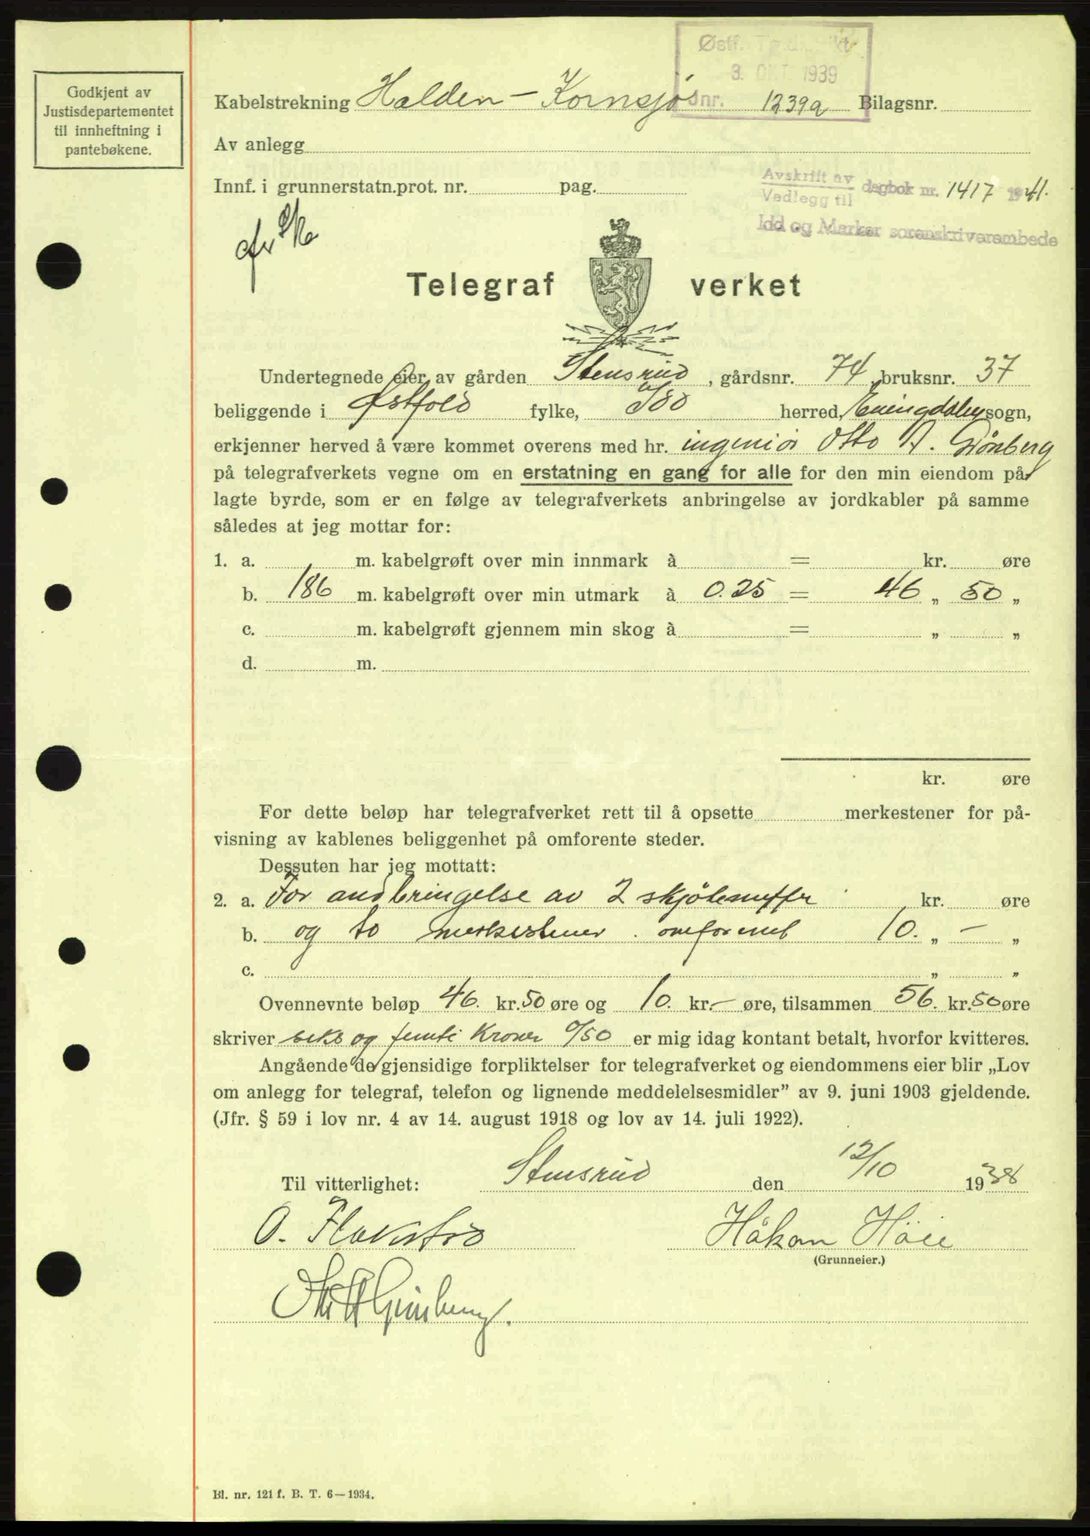 Godkjent av
Justisdepartementet
til innheftning i
pantebøkene.
3. OKT. 1939
Kabelstrekning Halden - Kornsjø nr. 1239a Bilagsnr.
Av anlegg
Innf. i grunnerstatn.prot. nr. pag.
Avskrift av
Vedlegg til dagbok nr. 1417 1941.
Idd og Marker sorenskriverembede
Telegraf verket
Undertegnede eier av gården Stensrud, gårdsnr. 74 bruksnr. 37
beliggende i Østfold fylke, Idd herred, sogn,
erkjenner herved å være kommet overens med hr. ingeniør Otto A. Grønberg
på telegrafverkets vegne om en erstatning en gang for alle for den min eiendom på-
lagte byrde, som er en følge av telegrafverkets anbringelse av jordkabler på samme
således at jeg mottar for:
1. a. m. kabelgrøft over min innmark à = kr. øre
b. 186 m. kabelgrøft over min utmark à 0.25 = 46 „ 50 „
c. m. kabelgrøft gjennem min skog à = „ „
d. m.
kr. øre
For dette beløp har telegrafverket rett til å opsette merkestener for på-
visning av kablenes beliggenhet på omforente steder.
Dessuten har jeg mottatt:
2. a. For andbringelse av 2 skjøtemuffer kr. øre
b. og to merkestener omforenet 10. „ - „
c. „ „
Ovennevnte beløp 46. kr. 50 øre og 10. kr. - øre, tilsammen 56. kr. 50 øre
skriver seks og femti Kroner 0/50 er mig idag kontant betalt, hvorfor kvitteres.
Angående de gjensidige forpliktelser for telegrafverket og eiendommens eier blir „Lov
om anlegg for telegraf, telefon og lignende meddelelsesmidler” av 9. juni 1903 gjeldende.
(Jfr. § 59 i lov nr. 4 av 14. august 1918 og lov av 14. juli 1922).
Til vitterlighet: Stensrud den 12/10 1938
O. Håkon Höie
(Grunneier.)
Bl. nr. 121 f. B. T. 6—1934.